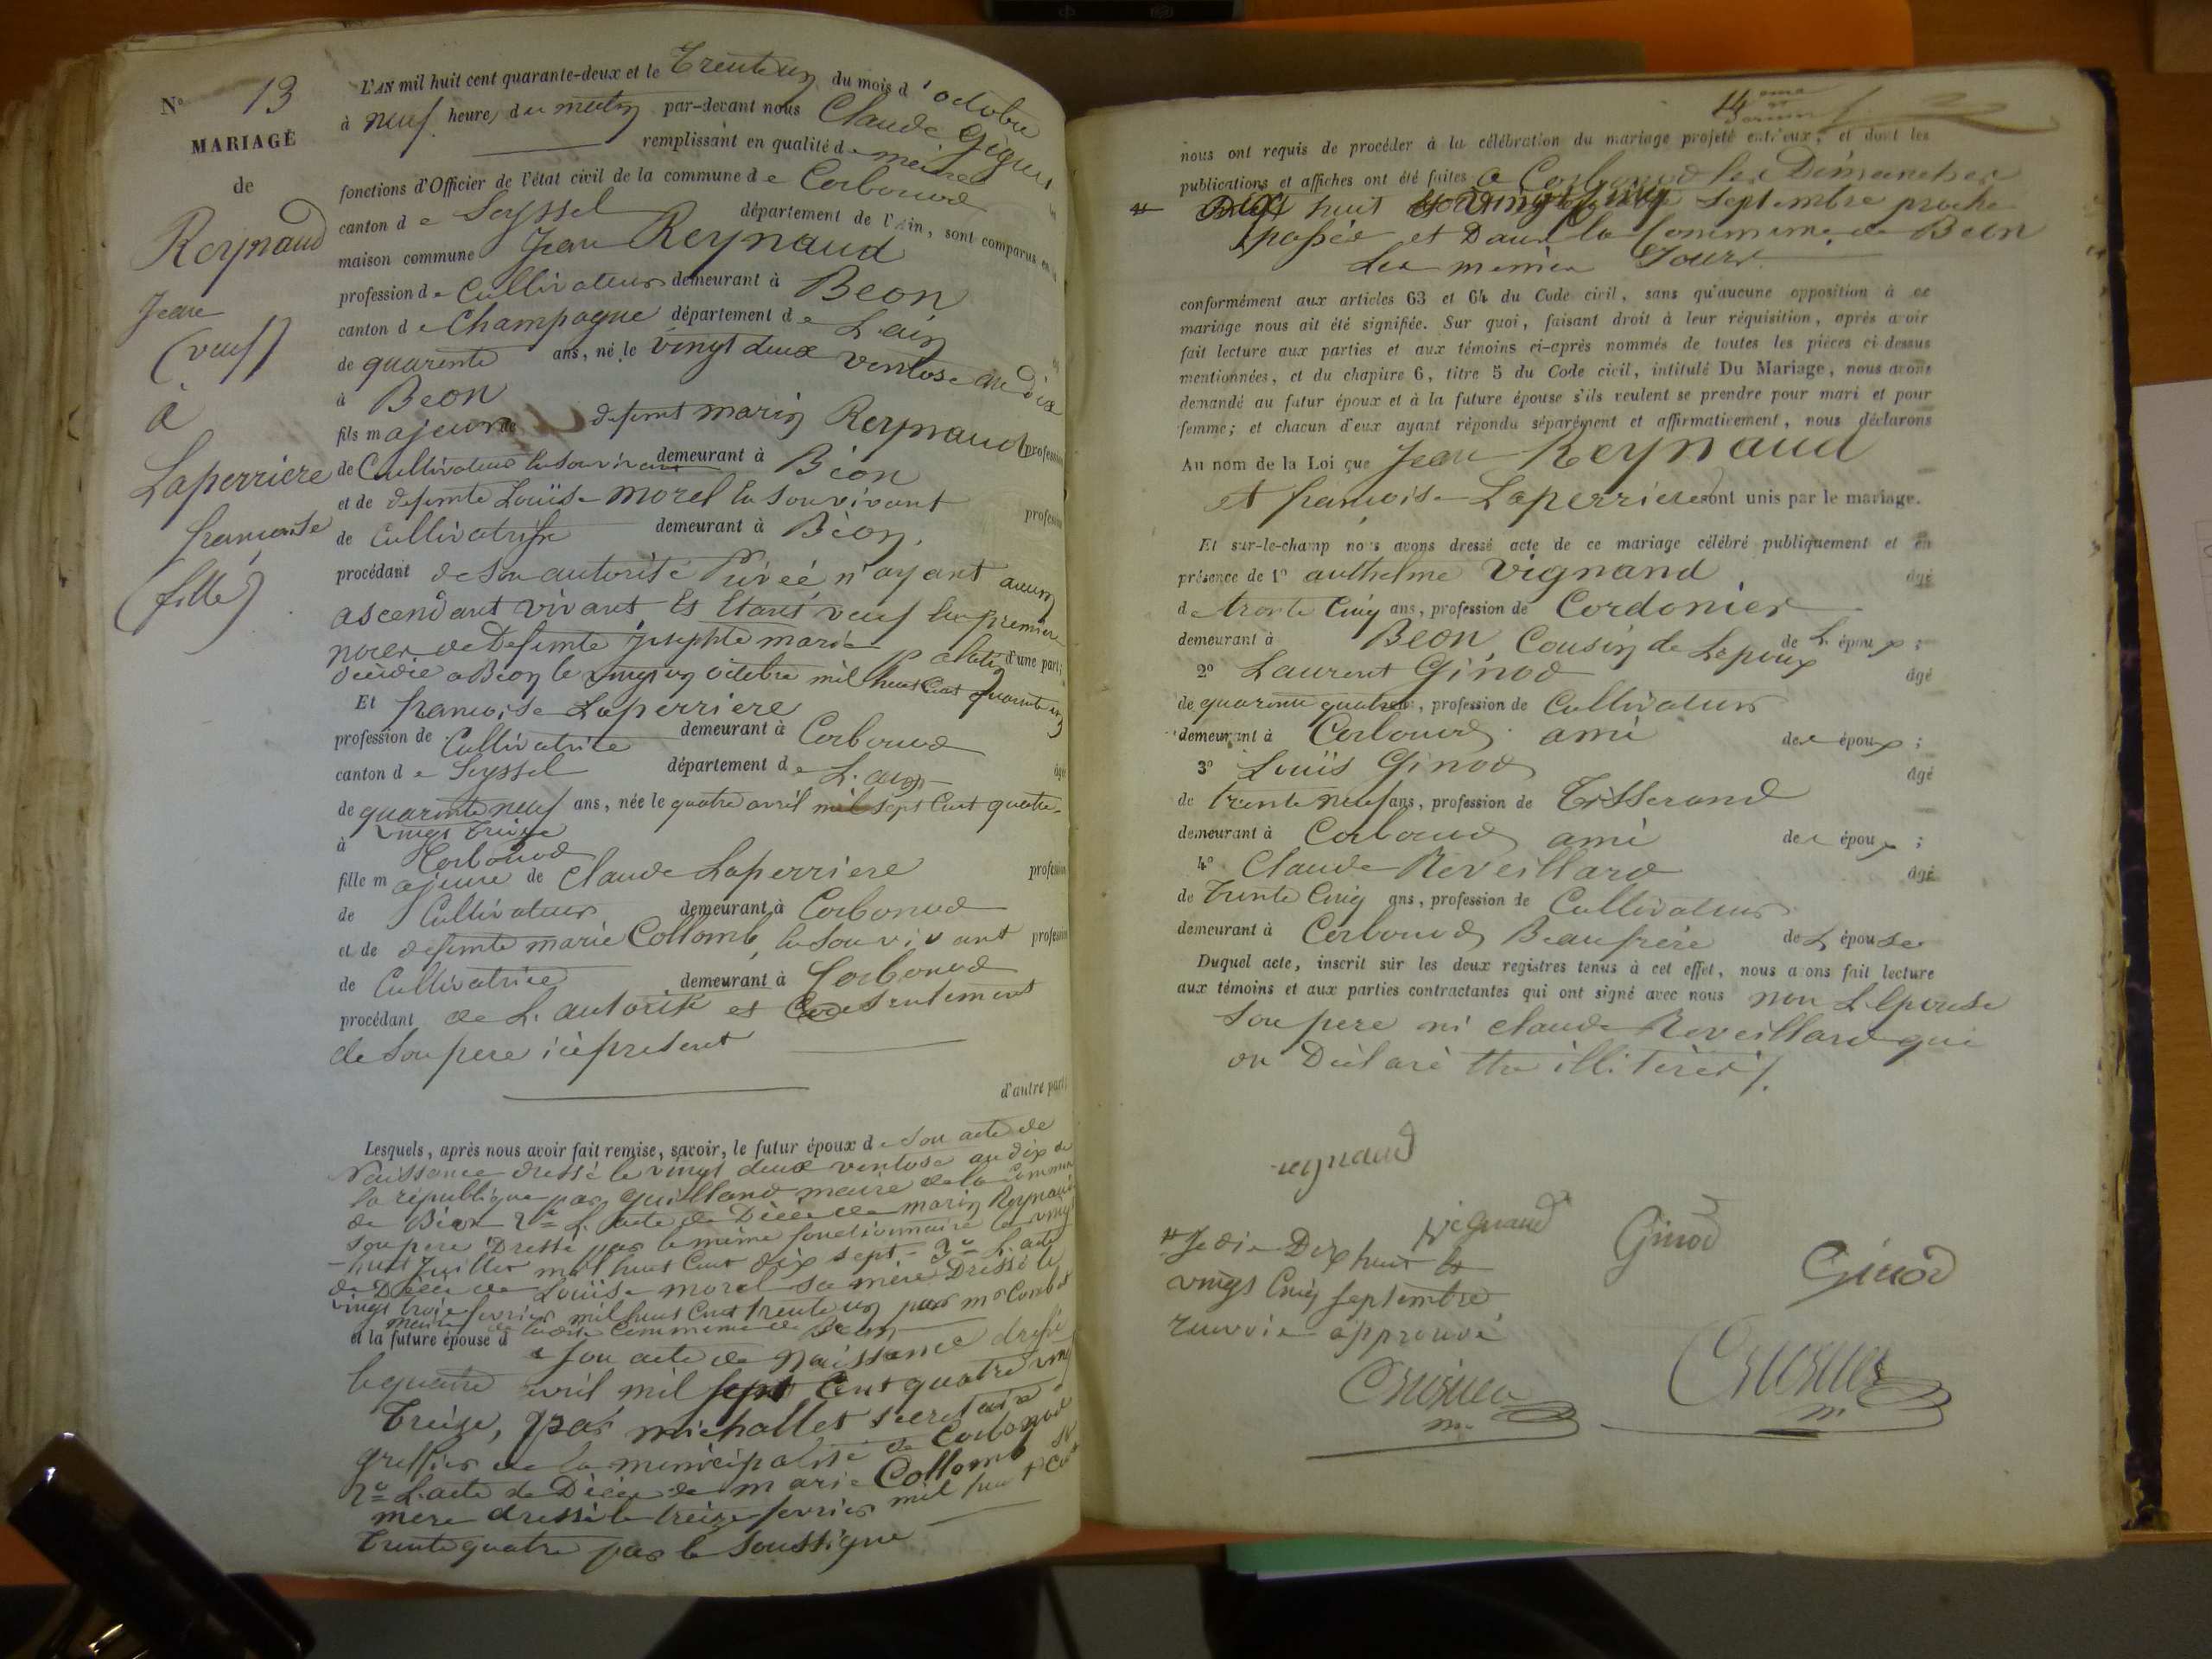 N° 13
MARIAGE
de
Reynaud
Jean
(veuf)
à
Laperriere
francoise
(fille)
L'AN mil huit cent quarante-deux et le Trente un du mois d'octobre
à neuf heures du matin par-devant nous Claude
remplissant en qualité de maire
fonctions d'Officier de l'état civil de la commune de Corbonod
canton de Seyssel département de l'Ain, sont comparus en la
maison commune Jean Reynaud
profession de Cultivateur demeurant à Beon
canton de Champagne département de L'ain
de quarente ans, né le vingt deux ventose an Dix
à Beon
fils majeur de defunt marin Reynaud profession
de Cultivateur lu souvivant demeurant à Béon
et de defunte Louïse morel lu souvivant profession
de Cultivatrise demeurant à Béon.
procédant de son autorité Privéé n'ayant aucun
ascendant vivant Et Etant veuf en premiere
noces de Defunte josephte marie d'une part;
décédie a Béon le vingt un octobre mil huit Cent quarante un
Et francoise Laperriere
profession de Cultivatrice demeurant à Corbonod
canton de Seyssel département de L'ain âgée
de quarente neuf ans, née le quatre avril mil sept Cent quatre-
vingt treize
à Corbonod
fille majeure de Claude Laperriere profession
de Cultivateur demeurant à Corbonod
et de defunte marie Collomb, lu souvivant profession
de Cultivatrice demeurant à Corbonod
procédant de L'autorité et Consentement
de son pere icé présent
d'autre part;
Lesquels, après nous avoir fait remise, savoir, le futur époux de son acte de
Naissance dressé le vingt deux ventose an dix de
la république par Guilland maire de la Commune
de Béon 2° L'acte de Décés de marin Reynaud
son pere Dressé par le même fonctionnaire le vingt
-huit Juillet mil huit Cent dix sept - 3° L'acte
de Décés de Louïse morel sa mère Dressé le
vingt trois fevrier mil huit Cent trente un par mr Combet
maire de ladite Commune de Beon
et la future épouse de son acte de Naissance dressé
le quatre avril mil sept Cent quatre vingt
treize, par michallet secretaire
greffier de la municipalité de Corbonod
2° L'acte de Décés de marie Collomb sa
mere dressé le treize fevrier mil huit Cent
trente quatre par le soussigné
14eme et
dernier
nous ont requis de procéder à la célébration du mariage projeté entr'eux, et dont les
publications et affiches ont été faites à Corbonod les Dimanches
Dix huit et vingt cinq septembre proche
passée et Dans la Commune de Beon
les memes Jours.
conformément aux articles 63 et 64 du Code civil, sans qu'aucune opposition à ce
mariage nous ait été signifiée. Sur quoi, faisant droit à leur réquisition, après avoir
fait lecture aux parties et aux témoins ci-après nommés de toutes les pièces ci-dessus
mentionnées, et du chapitre 6, titre 5 du Code civil, intitulé Du Mariage, nous avons
demandé au futur époux et à la future épouse s'ils veulent se prendre pour mari et pour
femme; et chacun d'eux ayant répondu séparément et affirmativement, nous déclarons
Au nom de la Loi que Jean Reynaud
et francoise Laperriere sont unis par le mariage.
Et sur-le-champ nous avons dressé acte de ce mariage célébré publiquement et en
présence de 1° anthelme Vignand âgé
de trente Cinq ans, profession de Cordonier
demeurant à Beon, Cousin de Lepoux de L'époux;
2° Laurent Ginod âgé
de quarente quatre ans, profession de Cultivateur
demeurant à Corbonod ami des époux;
3° Louïs Ginod âgé
de trente neuf ans, profession de Tisserand
demeurant à Corbonod ami des époux;
4° Claude Reveillard âgé
de trente Cinq ans, profession de Cultivateur
demeurant à Corbonod Beaufrére de L'épouse
Duquel acte, inscrit sur les deux registres tenus à cet effet, nous avons fait lecture
aux témoins et aux parties contractantes qui ont signé avec nous non L'Epouse
son pere ni Claude Reveillard qui
on Déclaré être illitérés.
reynaud
vignand
Ginod
Ginod
Je dis Dix huit et
vingt Cinq septembre
renvoie approuvé